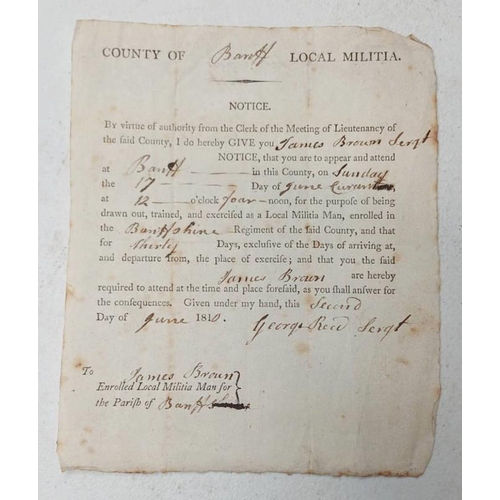 COUNTY OF Banff LOCAL MILITIA.
NOTICE.
By virtue of authority from the Clerk of the Meeting of Lieutenancy of
the ſaid County, I do hereby GIVE you James Brown Sergt
NOTICE, that you are to appear and attend
at Banff in this County, on Sunday
the 17 Day of June Curant
at 12 o'clock foar-noon, for the purpoſe of being
drawn out, trained, and exerciſed as a Local Militia Man, enrolled in
the Banffshire Regiment of the ſaid County, and that
for thirty Days, excluſive of the Days of arriving at,
and departure from, the place of exerciſe; and that you the ſaid
James Brown are hereby
required to attend at the time and place foreſaid, as you ſhall anſwer for
the conſequences. Given under my hand, this Second
Day of June 1810. George Reid Sergt
To James Brown
Enrolled Local Militia Man for
the Pariſh of Banff